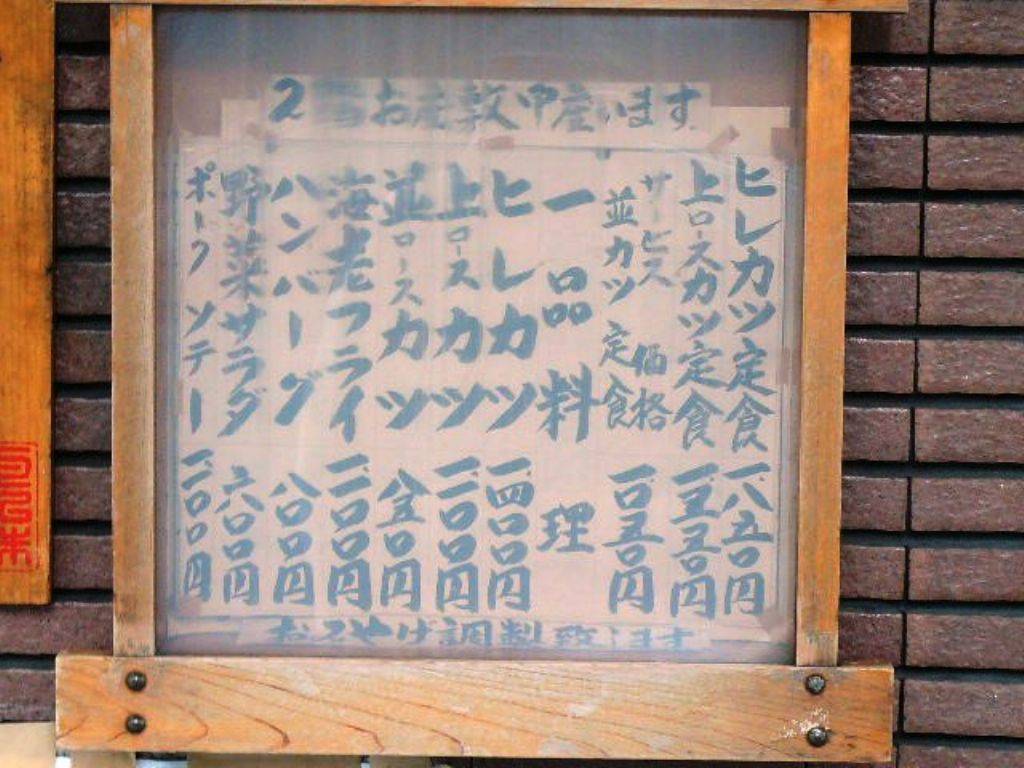 2 お座敷御座います
ヒレカツ定食 一、八五〇円
上ロースカツ定食 一、五五〇円
サービス価格
並カツ定食 一、〇五〇円
一品料理
ヒレカツ 一、四〇〇円
上ロースカツ 一、一〇〇円
並ロースカツ 八五〇円
海老フライ 一、一〇〇円
ハンバーグ 八〇〇円
野菜サラダ 六〇〇円
ポークソテー 一、一〇〇円
おみやげ調製致します